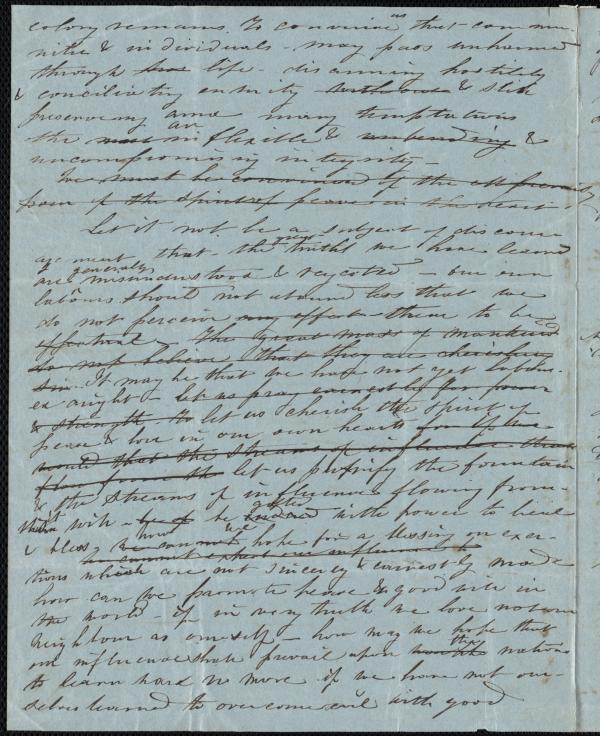 colony remains. To convince us that commu-
nities & individuals - may pass unharmed
through life - disarming hostility
& conciliating enmity & still
preserving amid many temptations
the an inflexible & unbending &
uncompromising integrity -
We must be convinced of the
from of the spirit of peace in the heart -
Let it not be a subject of discour-
agement that the truths we have learned
are generally misunderstood & rejected - our own
labours should not abound less that we
do not perceive any effect them to be
effectual - The great mass of mankind
do not believe that they are cherishing
sin. It may be that we have not yet labour-
ed aright - let us pray earnestly for power
& strength to let us cherish the spirit of
peace & love in our own hearts for if we
would that the streams of influence should
flow from let us purify the fountain
& the streams of influence flowing from
it will be gifted with power to heal
& bless, how we hope for a blessing on exer-
tions which are not sincerely & earnestly made
how can we promote peace & good will in
the world - if in very truth we love not our
neighbour as ourself - how may we hope that
our influence shall prevail upon the nations
to learn war no more if we have not our-
selves learned to overcome evil with good